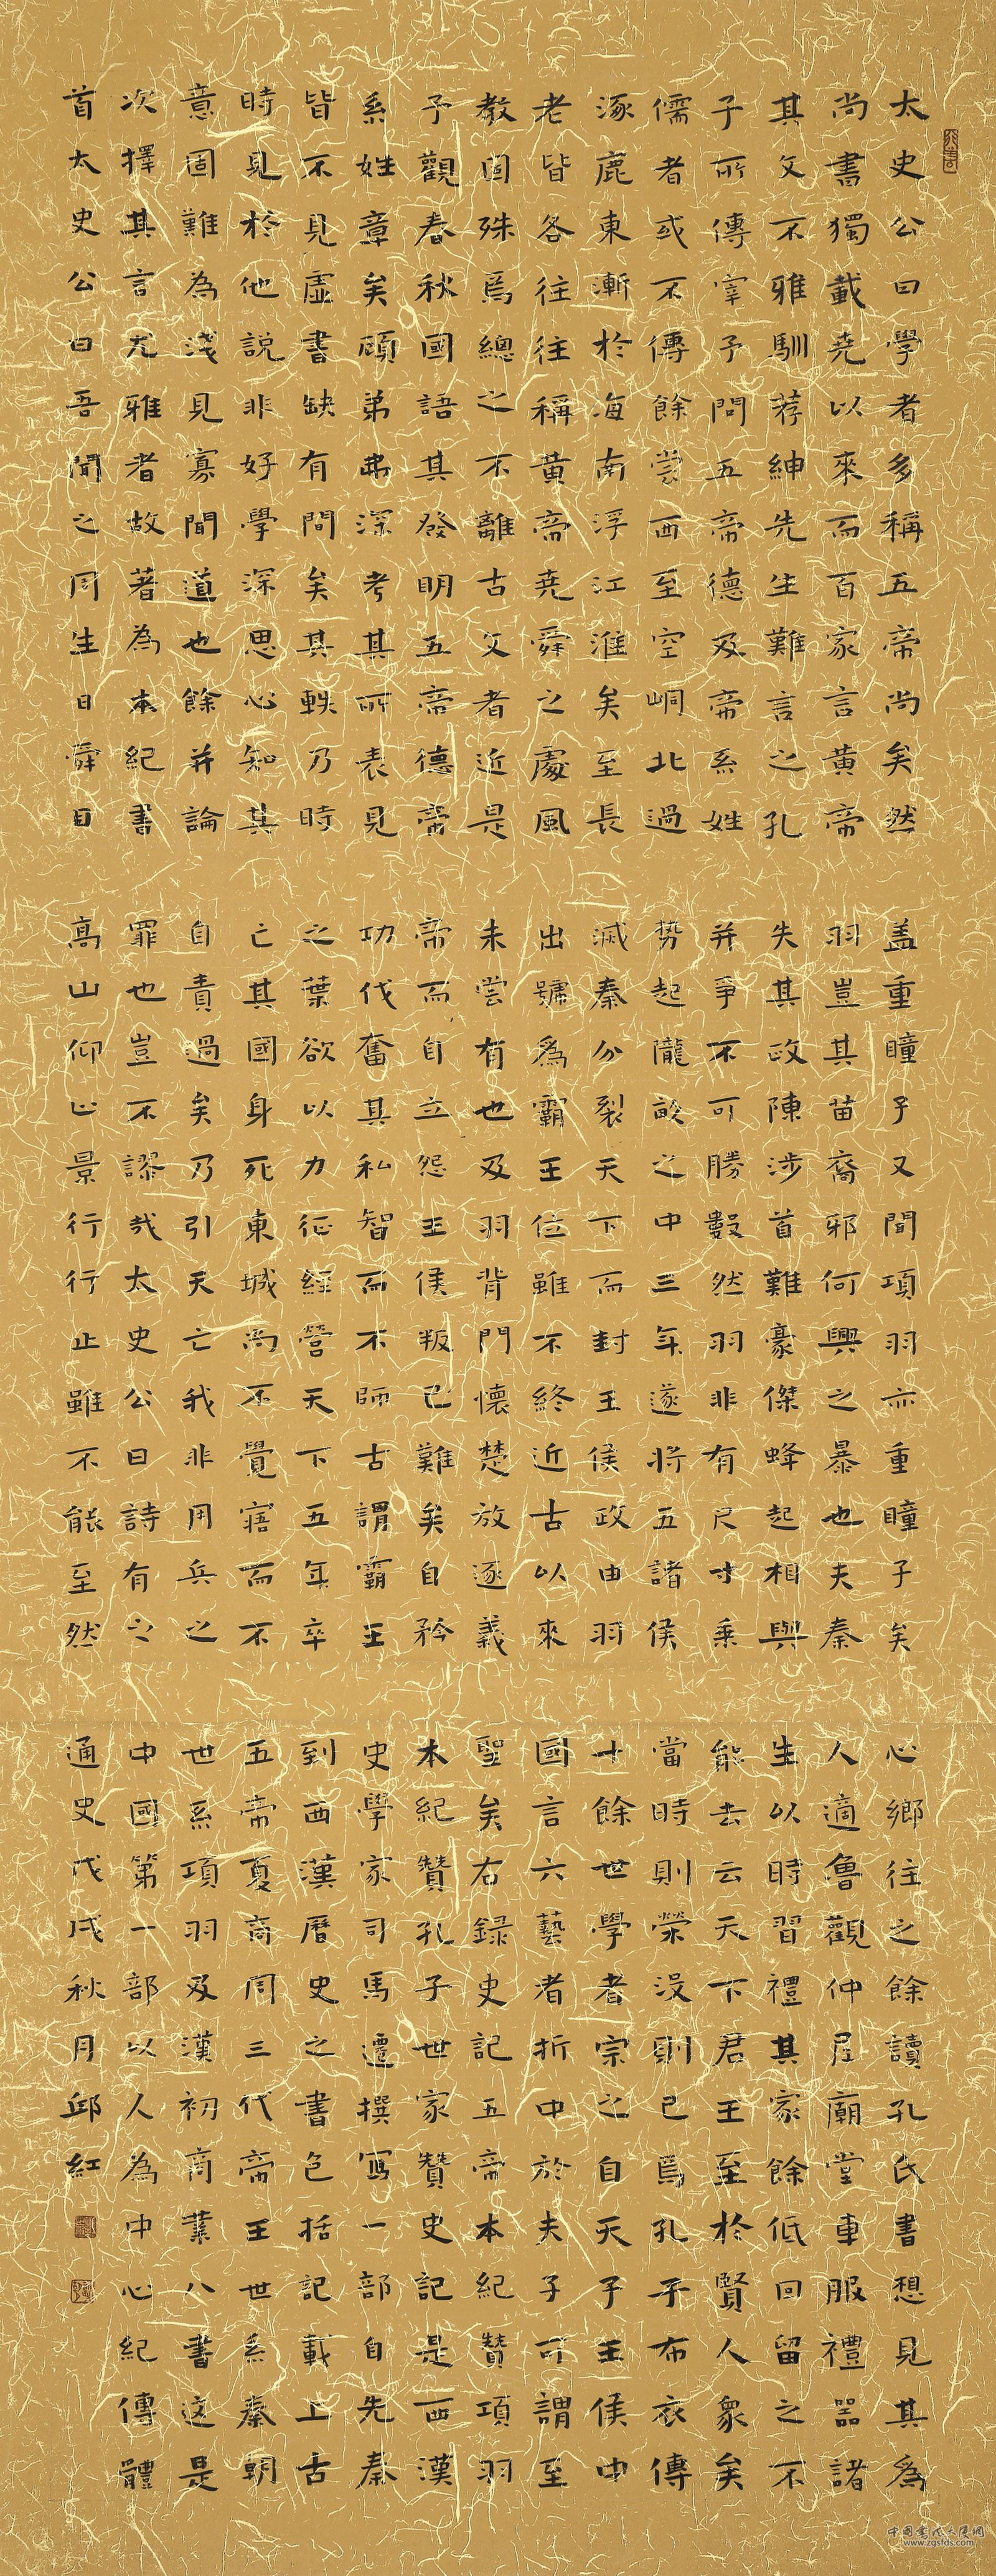 太史公曰學者多稱五帝尚矣然
尚書獨載堯以來而百家言黃帝
其文不雅馴荐紳先生難言之孔
子所傳宰予問五帝德及帝系姓
儒者或不傳餘嘗西至空峒北過
涿鹿東漸於海南浮江淮矣至長
老皆各往往稱黃帝堯舜之處風
教固殊焉總之不離古文者近是
予觀春秋國語其發明五帝德帝
系姓章矣顧弟弗深考其所表見
皆不見虛書缺有間矣其軼乃時
時見於他說非好學深思心知其
意固難為淺見寡聞道也餘并論
次擇其言尤雅者故著為本紀書
首太史公曰吾聞之周生曰舜目
盖重瞳子又聞項羽亦重瞳子矣
羽豈其苗裔邪何興之暴也夫秦
失其政陳涉首難豪傑蜂起相與
并爭不可勝數然羽非有尺寸乘
勢起隴畝之中三年遂將五諸侯
滅秦分裂天下而封王侯政由羽
出號為霸王位雖不終近古以來
未嘗有也及羽背門懷楚放逐義
帝而自立怨王侯叛己難矣自矜
功伐奮其私智而不師古謂霸王
之葉欲以力征經營天下五年卒
亡其國身死東城尚不覺寤而不
自責過矣乃引天亡我非用兵之
罪也豈不謬哉太史公曰詩有之
高山仰止景行行止雖不能至然
心鄉往之餘讀孔氏書想見其為
人適魯觀仲尼廟堂車服禮器諸
生以時習禮其家餘低回留之不
能去云天下君王至於賢人眾矣
當時則榮沒則已焉孔子布衣傳
十餘世學者宗之自天子王侯中
國言六藝者折中於夫子可謂至
聖矣右録史記五帝本紀贊項羽
本紀贊孔子世家贊史記是西漢
史學家司馬遷撰寫一部自先秦
到西漢曆史之書包括記載上古
五帝夏商周三代帝王世系秦朝
世系項羽及漢初商業八書这是
中國第一部以人為中心紀傳體
通史戊戌秋月邱紅
www.zgsfds.com